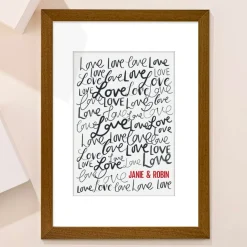 Love Love Love Love
Love Love Love LOVE
Love Love Love Love
Love Love Love Love
Love Love Love Love
Love Love Love Love
Love Love Love Love
Love Love Love Love
Love Love Love Love
Love JANIE & ROBIN
Love Love Love Love Love